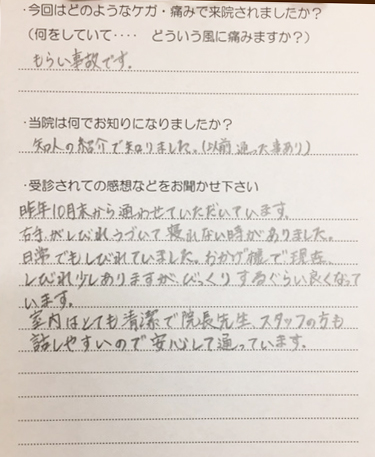 ・今回はどのようなケガ・痛みで来院されましたか？
（何をしていて‥‥　どういう風に痛みますか？）
もらい事故です。
・当院は何でお知りになりましたか？
知人の紹介で知りました。（以前通った事あり）
・受診されての感想などをお聞かせ下さい
昨年10月末から通わせていただいています。
右手がしびれうづいて寝れない時がありました。
日常でもしびれていました。おかげ様で現在
しびれ少しありますが、びっくりするぐらい良くなって
います。
室内はとても清潔で院長先生、スタッフの方も
話しやすいので安心して通っています。